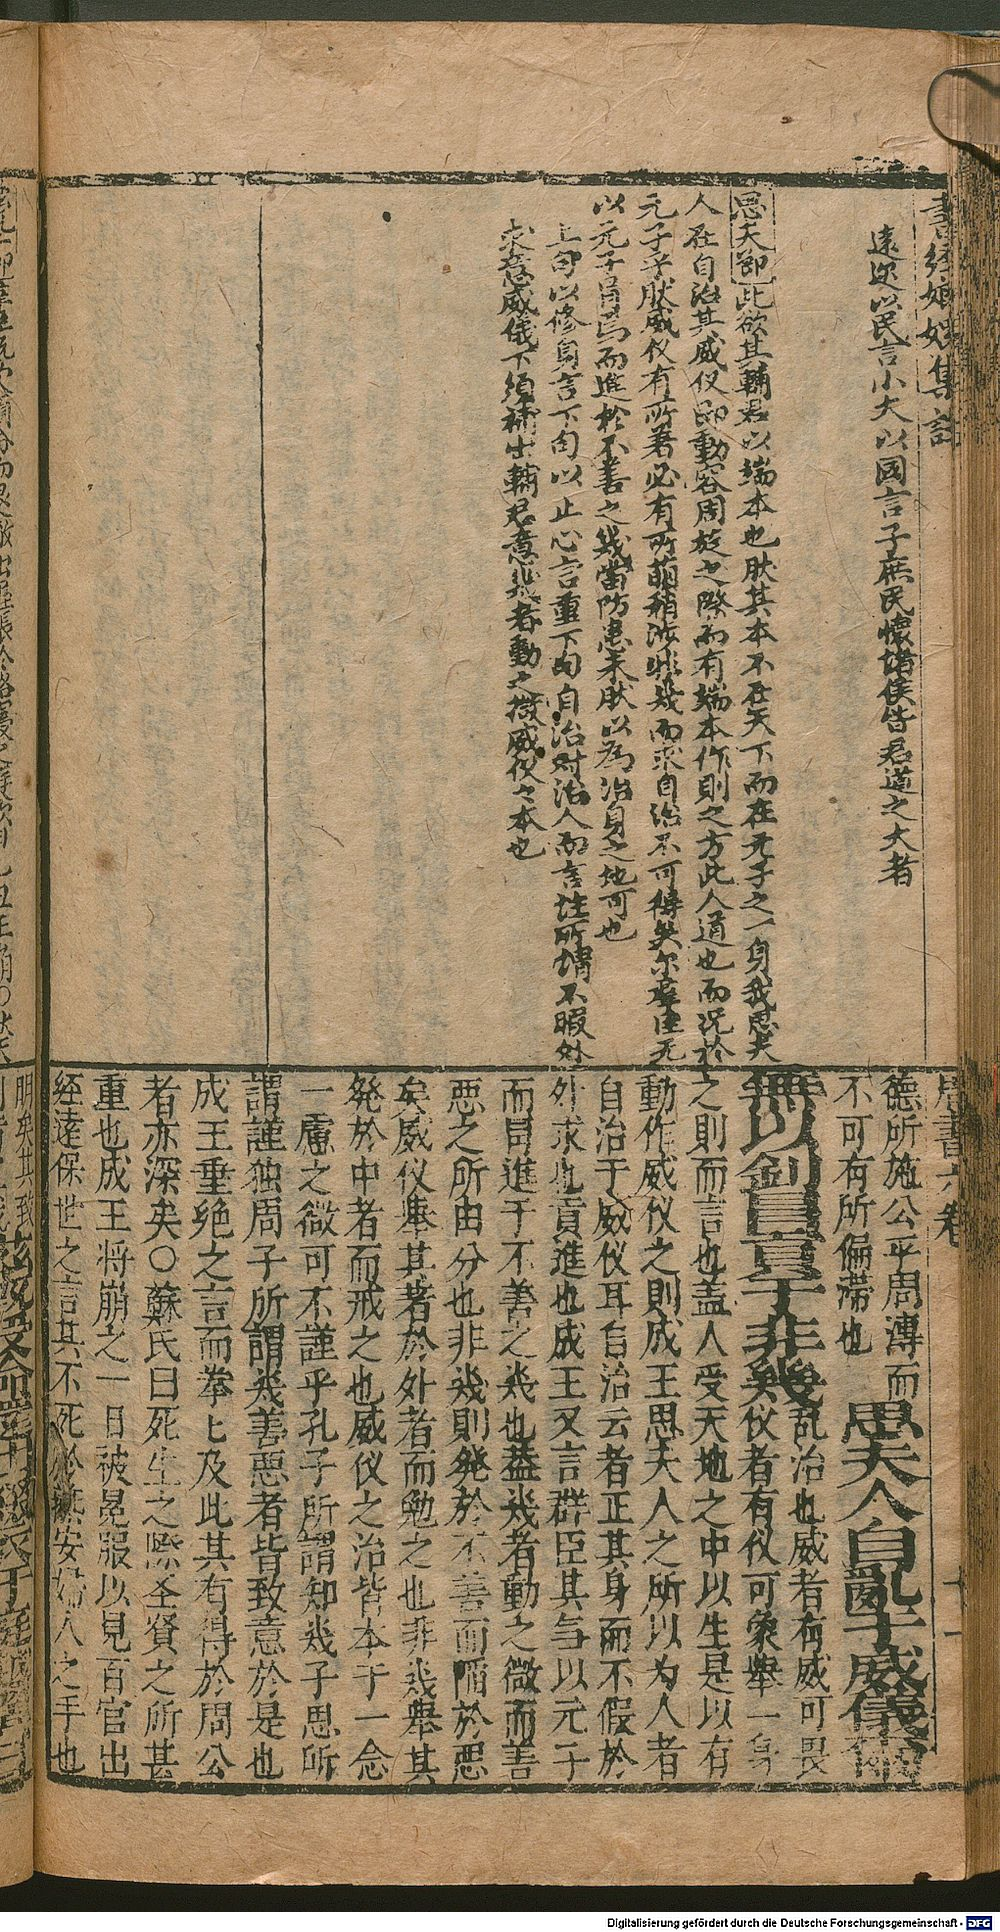 書經嫏嬛集註
遠迩以民言小大以國言子庶民懷諸侯皆君道之大者
思夫節此欲其輔君以端本也肰其本不在天下而在元子之一身我思夫
人在自治其威仪即動容周旋之際而有端本作則之方此人道也而况於
元子乎肰威仪有所著必有所萌稍涉非幾而求自治不可得矣尔羣臣无
以元子冐焉而進於不善之幾當防患未肰以爲治身之地可也
上句以修身言下句以止心言重下句自治对治人而言註所謂不暇外
求意威儀下須補出輔君意幾者動之微威仪之本也
周書六卷
十一
德所施公平周溥而
不可有所偏滯也 思夫人自亂于威儀爾
無以釗冒貢于非幾 乱治也威者有威可畏
仪者有仪可象舉一身
之則而言也盖人受天地之中以生是以有
動作威仪之則成王思夫人之所以为人者
自治于威仪耳自治云者正其身而不假於
外求也貢進也成王又言群臣其毋以元子
而冒進于不善之幾也葢幾者動之微而善
悪之所由分也非幾則発於不善而陥於悪
矣威仪舉其著於外者而勉之也非幾舉其
発於中者而戒之也威仪之治皆本于一念
一慮之微可不謹乎孔子所謂知幾子思所
謂謹独周子所謂幾善悪者皆致意於是也
成王垂絶之言而拳上及此其有得於周公
者亦深矣〇蘇氏曰死生之際圣賢之所甚
重也成王将崩之一日被冕服以見百官出
经逺保世之言其不死於燕安婦人之手也
Digitalisierung gefördert durch die Deutsche Forschungsgemeinschaft - DFG